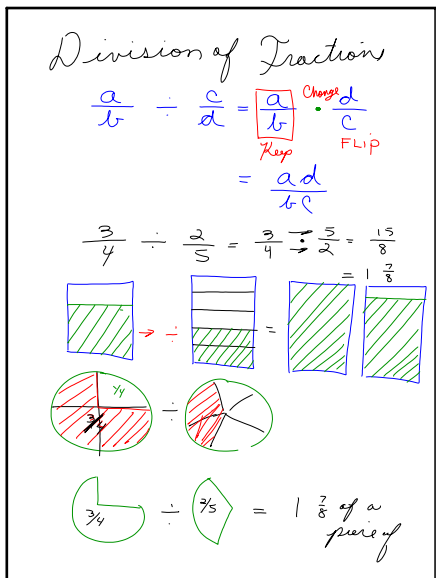 Division of Fractions
a/b ÷ c/d = a/b Change · d/c
Keep FLIP
= ad/bc
3/4 ÷ 2/5 = 3/4 · 5/2 = 15/8
= 1 7/8
→ ÷ =
1/4
3/4 ÷
3/4 ÷ 2/5 = 1 7/8 of a
piece of